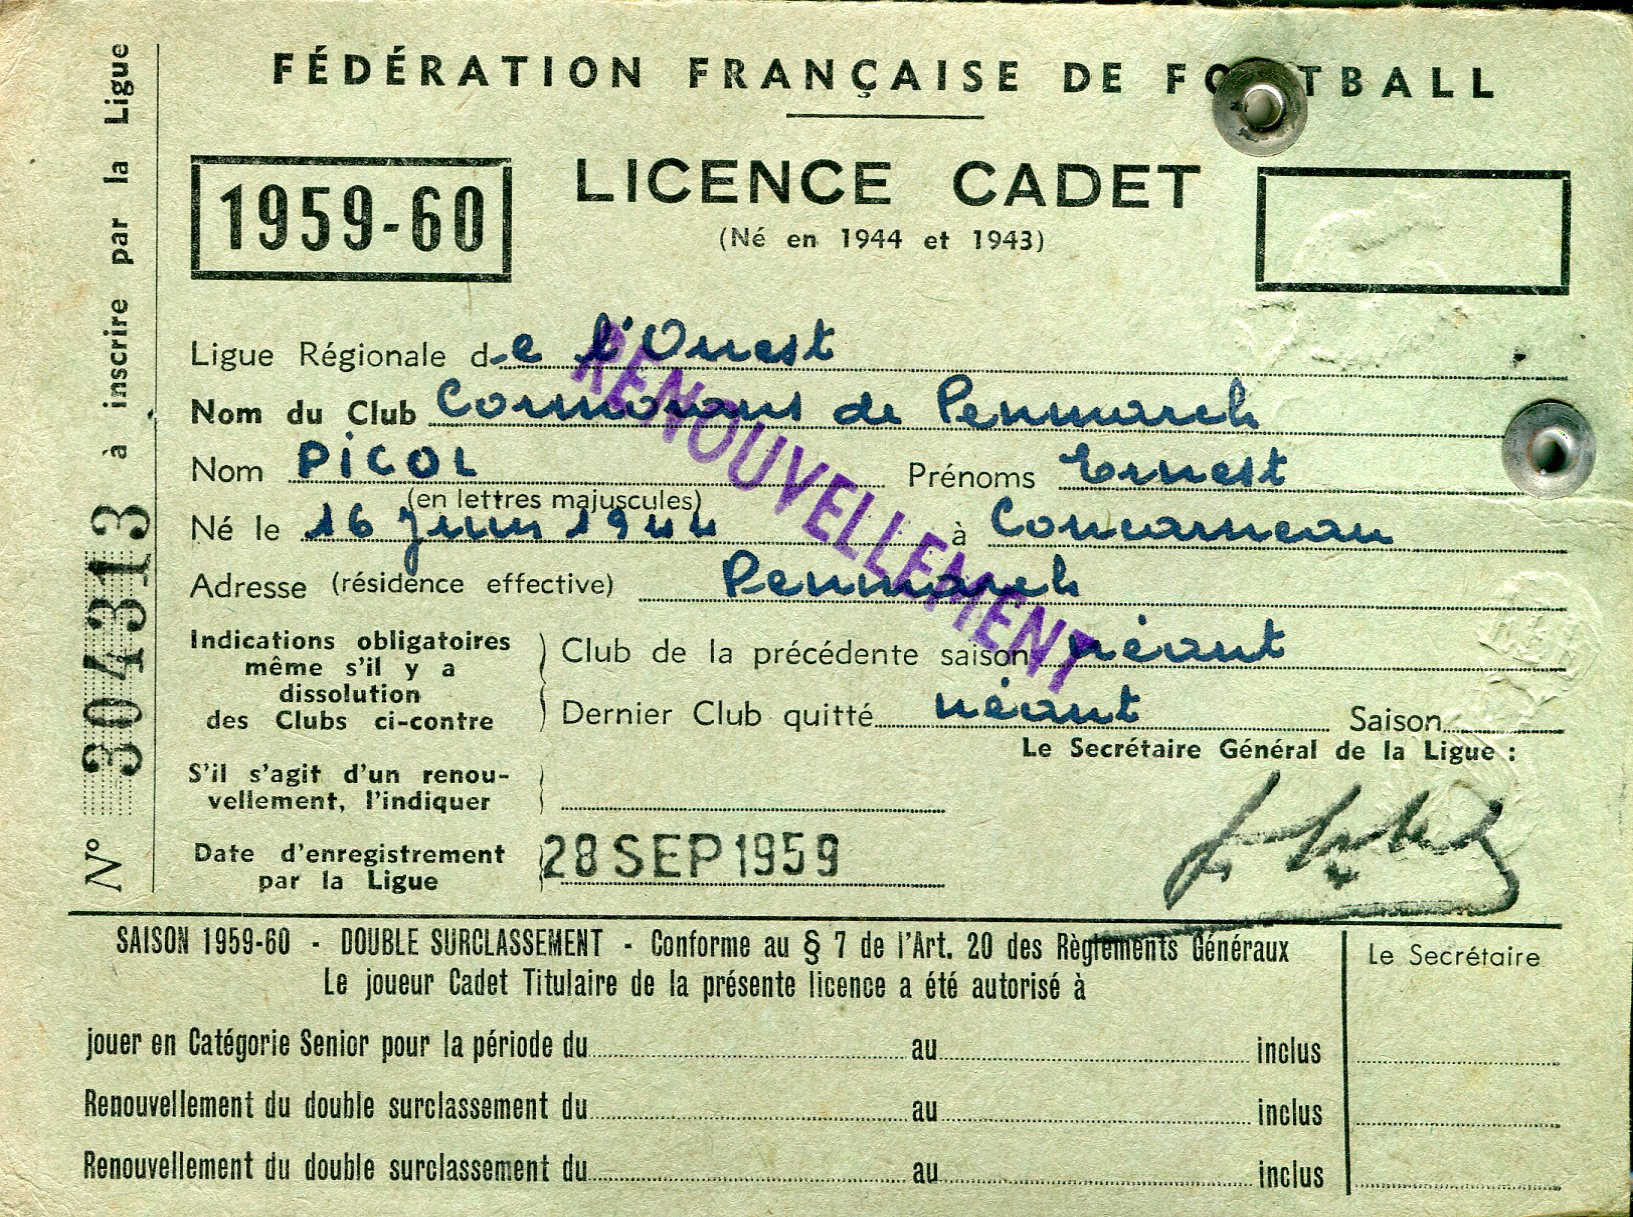 FÉDÉRATION FRANÇAISE DE FOOTBALL
1959-60
LICENCE CADET
(Né en 1944 et 1943)
Ligue Régionale de l'Ouest
Nom du Club Cormorans de Penmarch
Nom PICOL Prénoms Ernest
(en lettres majuscules)
Né le 16 Juin 1944 à Concarneau
Adresse (résidence effective) Penmarch
RENOUVELLEMENT
Indications obligatoires même s'il y a dissolution des Clubs ci-contre
Club de la précédente saison néant
Dernier Club quitté néant Saison
Le Secrétaire Général de la Ligue :
S'il s'agit d'un renou-
vellement, l'indiquer
Date d'enregistrement
par la Ligue
28 SEP 1959
N° 304313 à inscrire par la Ligue
SAISON 1959-60 - DOUBLE SURCLASSEMENT - Conforme au § 7 de l'Art. 20 des Règlements Généraux
Le joueur Cadet Titulaire de la présente licence a été autorisé à
Le Secrétaire
jouer en Catégorie Senior pour la période du au inclus
Renouvellement du double surclassement du au inclus
Renouvellement du double surclassement du au inclus